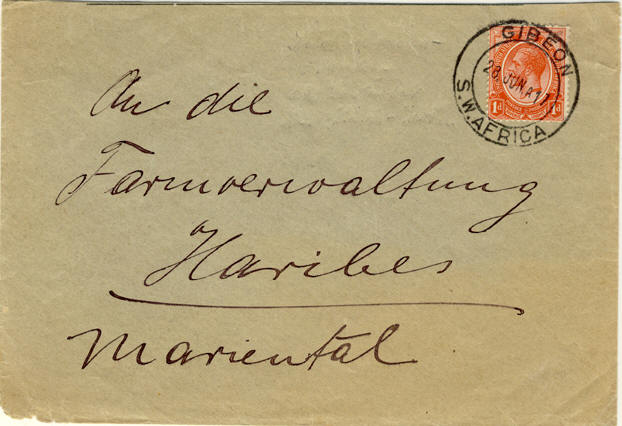 GIBEON
28 JUN 17
S.W.AFRICA
1d
An die
Farmverwaltung
Haribes
Mariental